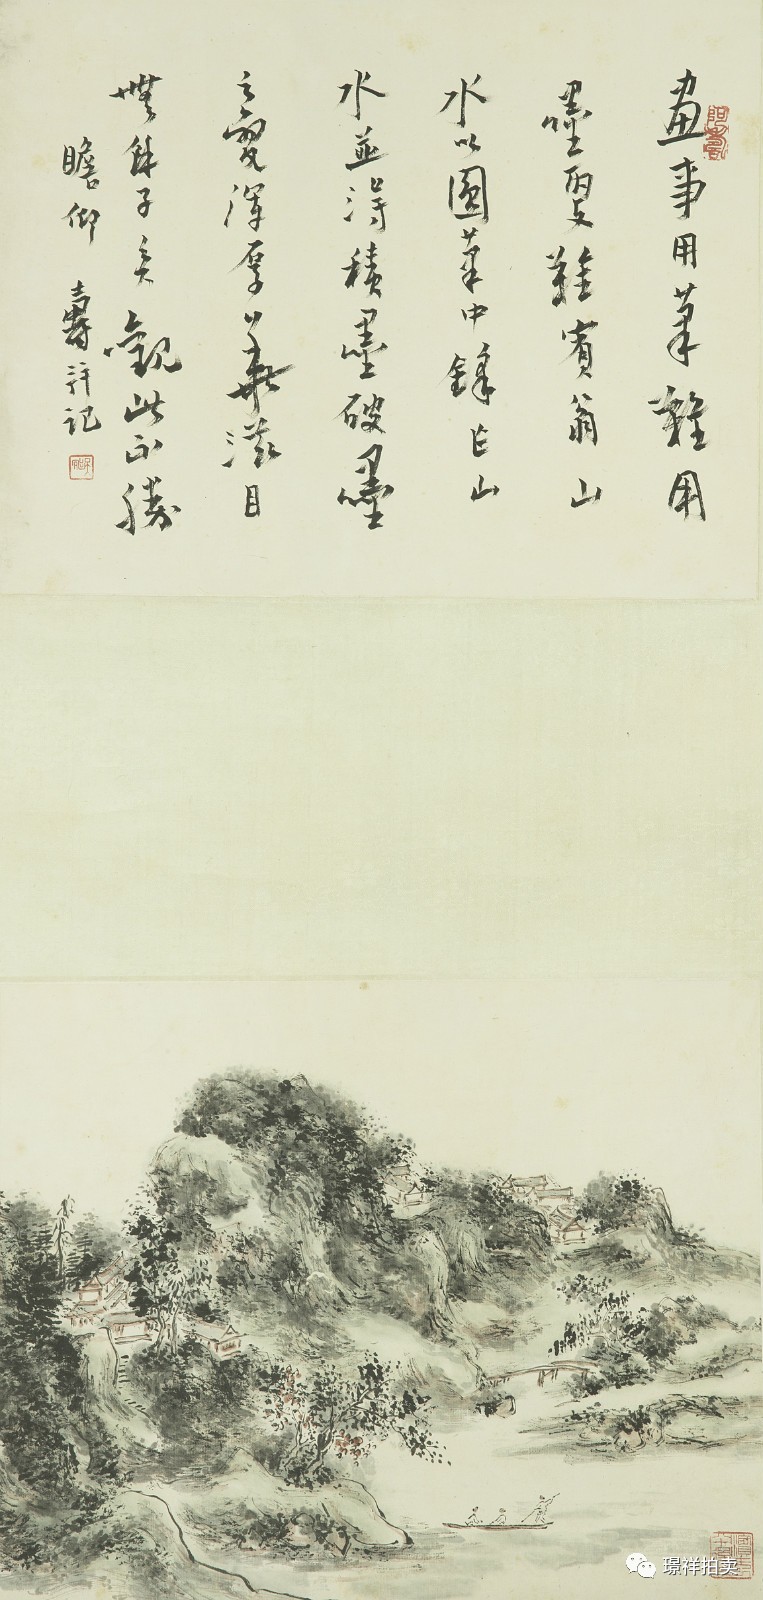 画事用筆難用
墨更難賓翁山
水以圓筆中鋒作山
水並得積墨破墨
之變渾厚華滋目
無餘子矣觀此不勝
瞻仰 壽許記
璟祥拍卖